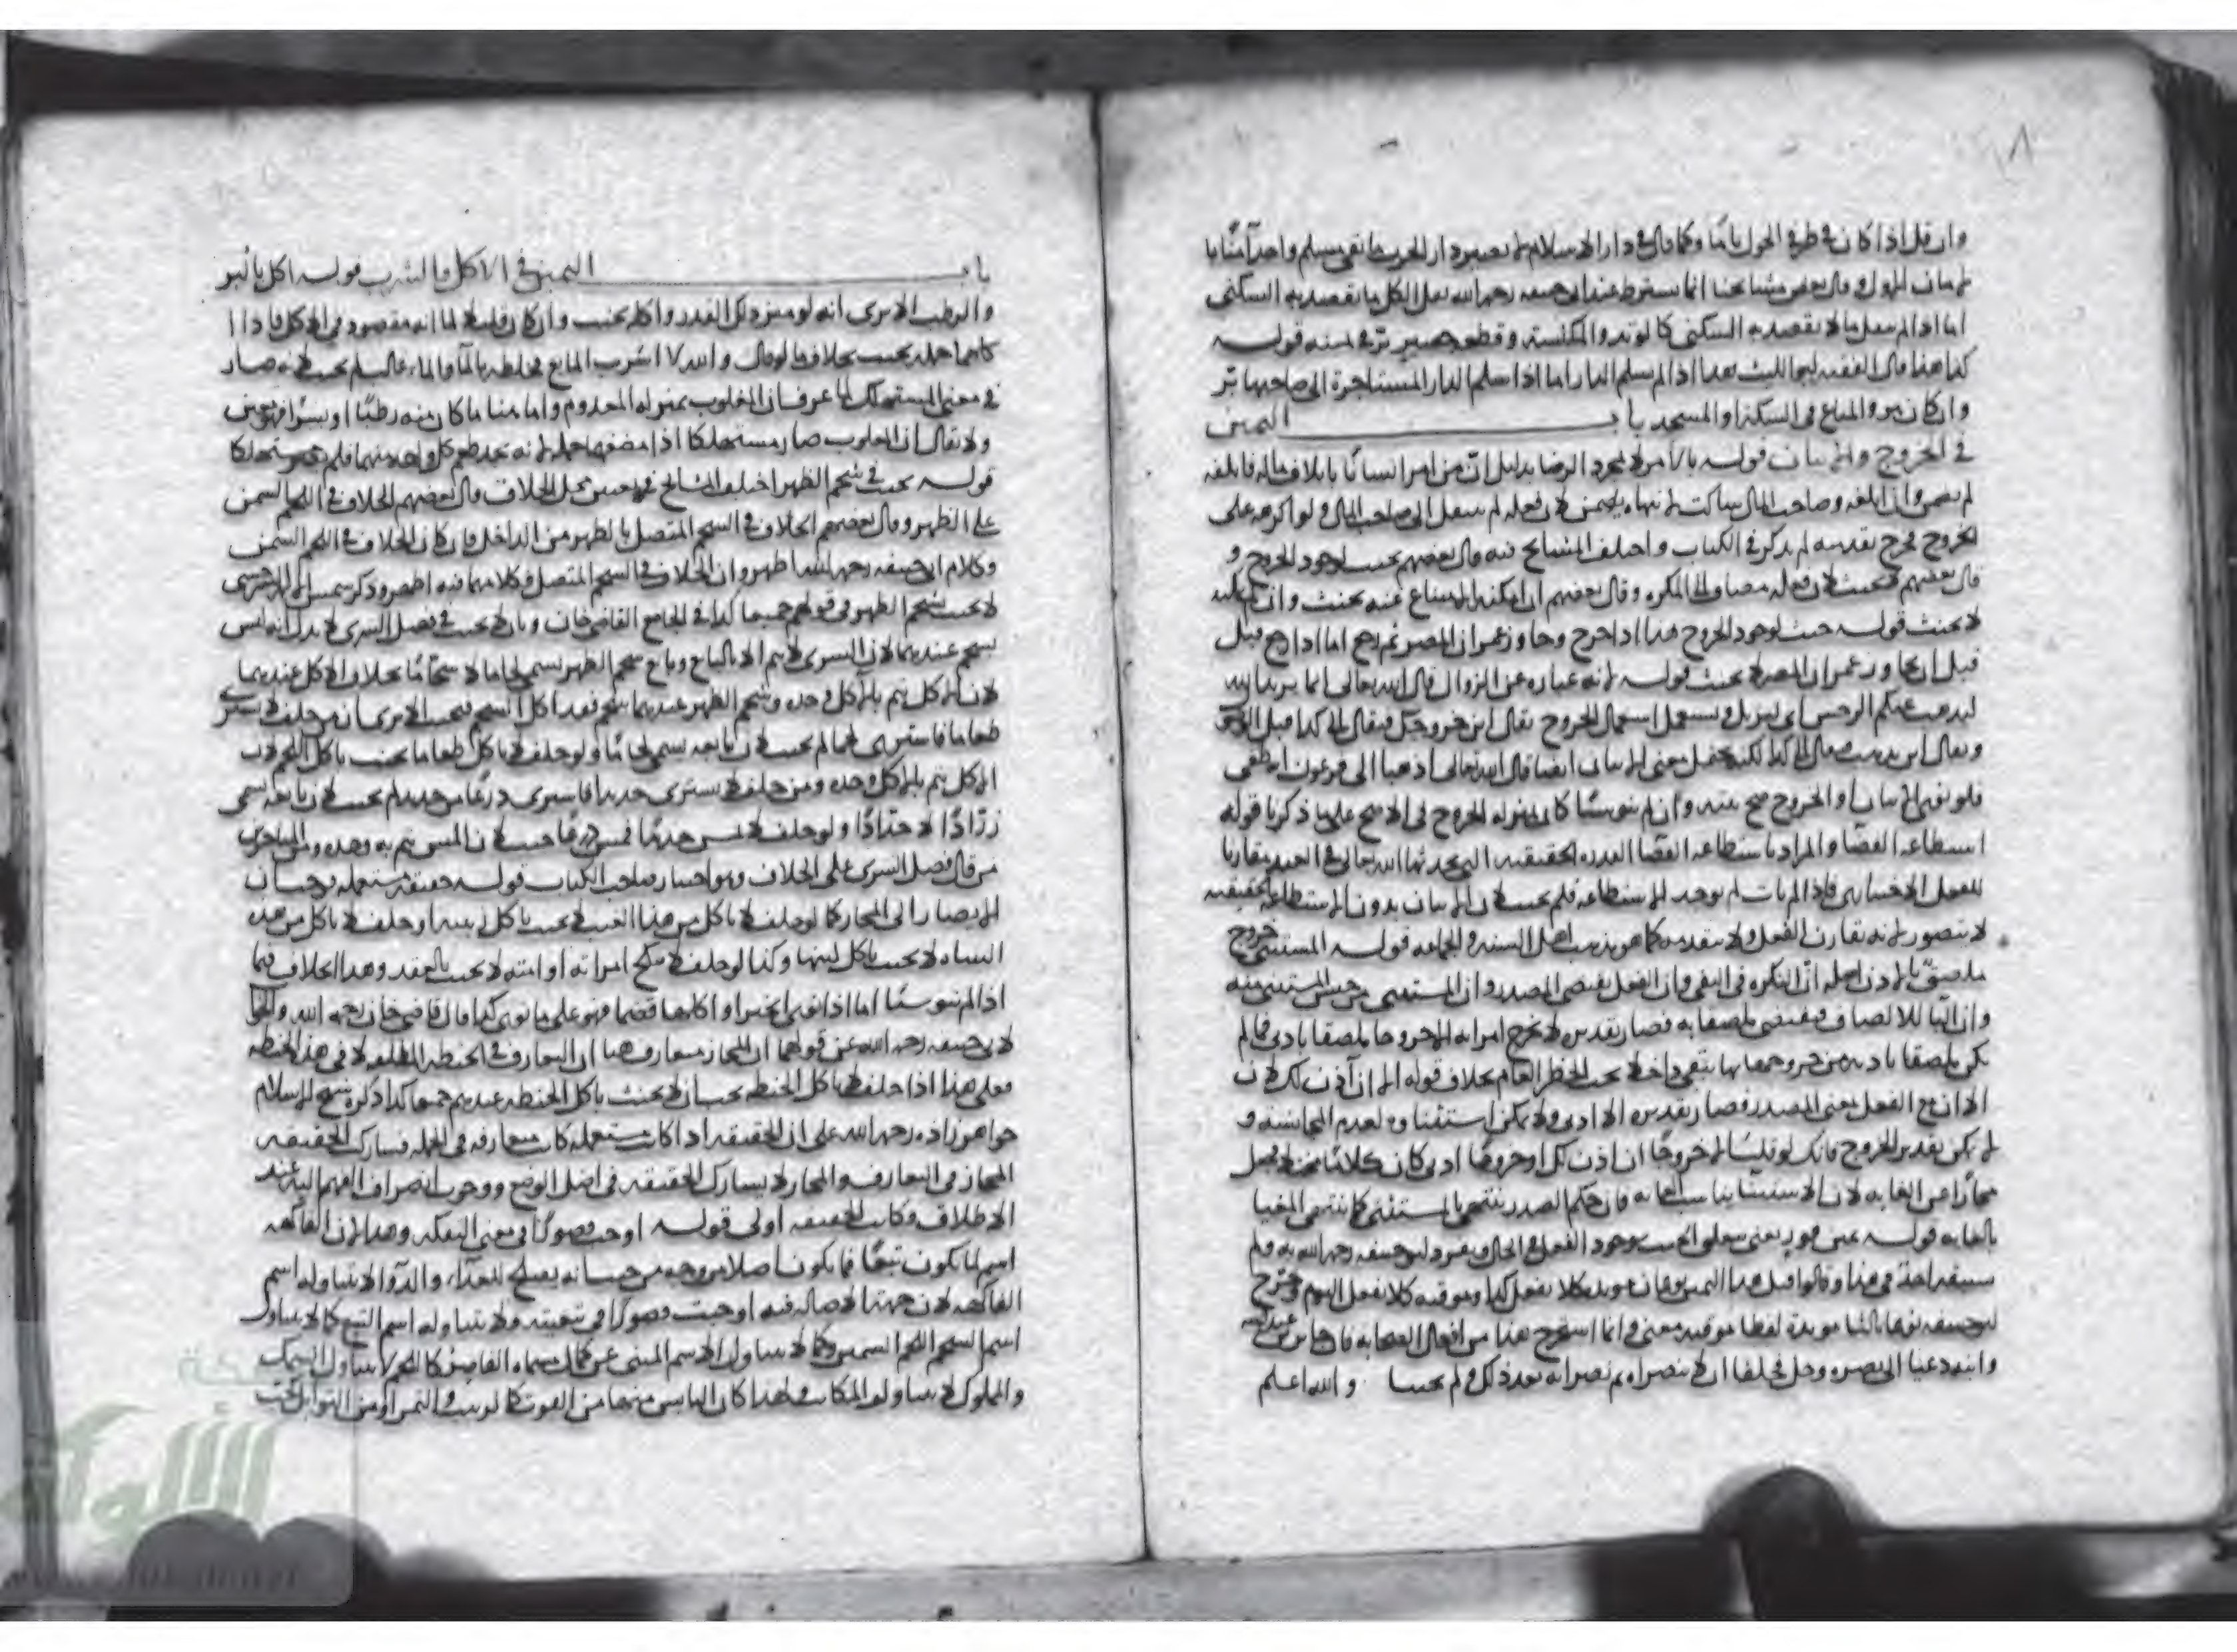 وان قل اذا كان في طرفي الحول تاما وكما قال في دار الاسلام لا تصير دار الحرب ما بقي مسلم واحد آمنا
وقال بعض مشايخنا انما يشترط عند ابي حنيفه رحمه الله نقل الكل ما يقصد به السكنى
اما اذا لم ينقل ما لا يقصد به السكنى كالوتد والمكنسة وقطعه حصير بر في يمينه قوله
كذا هنا قال الفقيه ابو الليث هذا اذا لم يسلم الدار اما اذا سلم الدار المستاجرة الى صاحبها بر
وان كان هو والمتاع في السكة او المسجد باب اليمين
في الخروج والاتيان قوله بالامر لا بمجرد الرضا بدليل ان من امر انسانا باتلاف ماله فاتلفه
لم يضمن وان اتلفه وصاحب المال ساكت لم ينهاه يضمن لان فعله لم ينقل الى صاحب المال ولو اكرهه على
الخروج فخرج بقدميه لم يذكر في الكتاب واختلف المشايخ فيه قال بعضهم يحنث لوجود الخروج و
قال بعضهم لا يحنث لان فعله مضاف الى المكره وقال بعضهم ان امكنه الامتناع عنه يحنث وان لم يمكنه
لا يحنث قوله حنث لوجود الخروج هذا اذا خرج وجاوز عمران المصر ثم رجع اما اذا رجع قبل
قبل ان يجاوز عمران المصر لا يحنث قوله لانه عباره عن الزوال قال الله تعالى انما يريد الله
ليذهب عنكم الرجس اي ليزيل ويستعمل استعمال الخروج يقال اين خروجك فيقال الى كذا
ويقال اين يذهب فيقال الى كذا لكنه يحتمل معنى الاتيان ايضا قال الله تعالى اذهبا الى فرعون انه طغى
فلو نوى الاتيان او الخروج صح نيته وان لم ينو شيئا كان بمنزله الخروج في الاصح على ما ذكرنا قوله
استطاعه القضا والمراد باستطاعه القضا القدره الحقيقيه التي يحدثها الله تعالى في العبد مقارنا
للفعل الاختياري فاذا لم يات لم يوجد الاستطاعه فلم يحنث لان الاتيان بدون الاستطاعه الحقيقيه
لا يتصور لانه تقارن الفعل ولا يتقدمه كما هو مذهب اهل السنه والجماعه قوله المستثنى خروج
ملصق بالاذن اصله ان النكره في النفي وان الفعل يقتضي المصدر وان المستثنى من جنس المستثنى منه
وان البا للالصاق فيقتضي ملصقا به فصار تقديره لا تخرج امراته الا خروجا ملصقا باذني فما لم
يكن ملصقا باذنه من خروجها بها بقي داخلا تحت الحظر العام بخلاف قوله الا ان آذن لك لان
الا ان مع الفعل بمعنى المصدر فصار تقديره الا اذني ولا يمكن استثناوه لعدم المجانسه و
لا يمكن تقدير الخروج فانك لو قلت الا خروجا ان اذن لك او خروجا اذني كان كلاما مختلا فجعل
مجازا عن الغايه لان الاستثنا يناسب الغايه فان حكم الصدر ينتهي بالمستثنى كما ينتهي المغيا
بالغايه قوله يمين فور يعني يتعلق الحنث بوجود الفعل في الحال وتفرد ابو حنيفه رحمه الله به ولم
يسبقه احد في هذا وقالوا قبل هذا اليمين نوعان موبده كلا يفعل كذا وموقته كلا يفعل اليوم فخرج
ابو حنيفه نوعا ثالثا موبدة لفظا موقته معنى وانما استخرج هذا من افعال الصحابه فان جابر بن عبد الله
وابنه دعيا الى نصره رجل فحلفا ان لا ينصراه ثم نصراه بعد ذلك ولم يحنثا والله اعلم
باب اليمين في الاكل والشرب قوله اكل بالبسر
والرطب الا ترى انه لو ميز ذلك القدر واكله يحنث وان كان قليلا لما انه مقصود في الاكل فاذا
كانا جمله يحنث بخلاف ما لو قال والله لا اشرب المايع فخلطه بالماء والماء غالب لم يحنث لانه صار
في معنى المستهلك لما عرف ان المغلوب بمنزله المعدوم واما هنا ما كان منه رطبا او بسرا فهو معين
ولا يقال ان المغلوب صار مستهلكا اذا مضغهما جمله لانه تجد طعم كل واحد منهما فلم يصر مستهلكا
قوله يحنث في شحم الظهر اختلف المشايخ في تعيين محل الخلاف قال بعضهم الخلاف في اللحم السمين
على الظهر وقال بعضهم الخلاف في الشحم المتصل بالظهر من الداخل فان كان الخلاف في اللحم السمين
وكلام ابي حنيفه رحمه الله اظهر وان الخلاف في الشحم المتصل فكلامهما فيه اظهر وذكر شمس الايمه السرخسي
لا يحنث بشحم الظهر في قولهم جميعا كذا في الجامع القاضي خان وبان لا يحنث في فصل الشرى لا يدل انه ليس
بشحم عندهما لان الشرى لا يتم الا بالبايع وبايع شحم الظهر يسمى لحاما لا شحاما بخلاف الاكل عندهما
لان الاكل يتم بالاكل وحده وشحم الظهر عندهما شحم فقد اكل الشحم فيحنث الا ترى ان من حلف لا يشتري
طعاما فاشترى لحما لم يحنث لان بايعه يسمى لحاما ولو حلف لا ياكل طعاما يحنث باكل اللحم لان
الاكل يتم بالاكل وحده ومن حلف لا يشتري حديدا فاشترى درعا من حديد لم يحنث لان بايعه يسمى
زرادا لا حدادا ولو حلف لا يمس حديدا فمس درعا حنث لان المس يتم به وحده
من قال فصل الشرى على الخلاف وهو اختيار صاحب الكتاب قوله حقيقه مستعمله
لا يصار الى المجاز كما لو حلف لا ياكل من هذا العنب لا يحنث باكل زبيبه او حلف لا ياكل من هذه
الشاه لا يحنث باكل لبنها وكذا لو حلف لا ينكح امراته او امته لا يحنث بالعقد وهذا الخلاف فيما
اذا لم ينو شيئا اما اذا نوى الخبز او اكلها قضما فهو على ما نوى كذا قال قاضي خان رحمه الله
لابي حنيفه رحمه الله عن قولهما ان المجاز متعارف هنا ان التعارف في الحنطه المطلقه لا في هذه الحنطه
فعلى هذا اذا حلف لا ياكل الحنطه يجب ان لا يحنث باكل الحنطه عندهم جميعا كذا ذكره شيخ الاسلام
خواهر زاده رحمه الله على ان الحقيقه اذا كانت مستعمله كانت متعارفه في الجمله فشارك الحقيقه
المجاز في التعارف والمجاز لا يشارك الحقيقه في اصل الوضع ووجوب انصراف الفهم اليه عند
الاطلاق فكانت الحقيقه اولى قوله اوجب قصورا في معنى التفكه وهذا لان الفاكهه
اسم لما يكون تبعا فما يكون اصلا من وجه من حيث انه يصلح للغذاء والدواء لا يتناوله اسم
الفاكهه لان جهة الاصاله فيه اوجبت قصورا في تبعيته ولا يتناوله اسم التبع كما لا يتناول
اسم الشحم اللحم السمين وكما لا يتناول الاسم المبني عن كمال مسماه القاصر كاللحم لا يتناول السمك
والمملوك لا يتناول المكاتب ولهذا كان اليابس منهما من القوت كالزبيب والتمر او من التوابل